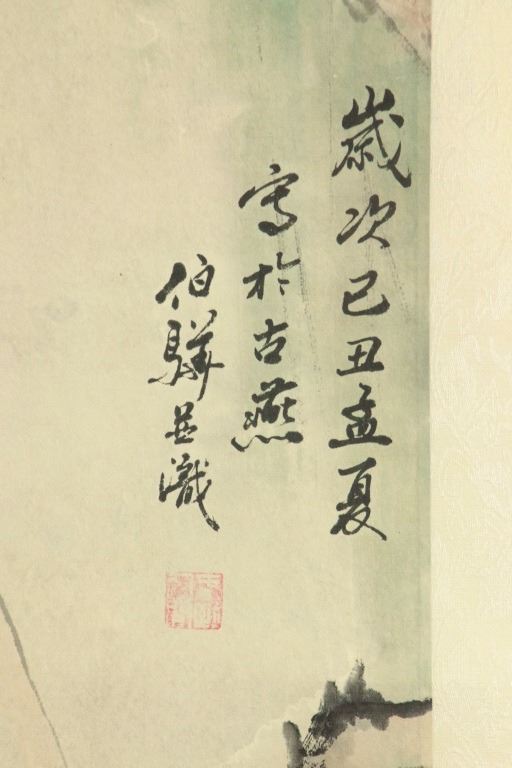 歲次己丑孟夏
寫於古燕
伯驊並識